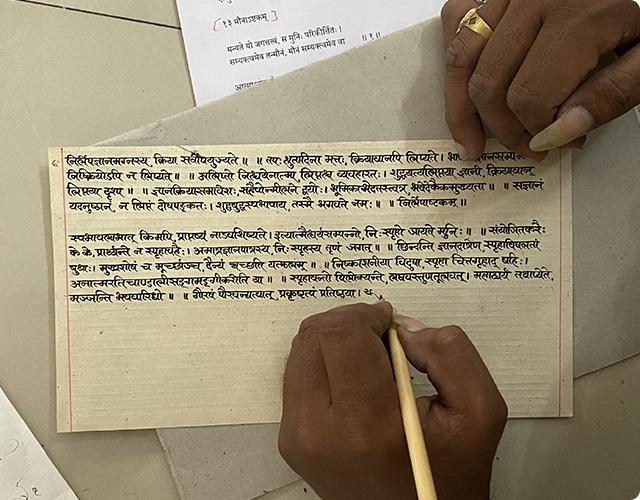 [ १३ मौनाऽष्टकम् ]
मन्यते यो जगत्तत्त्वं, स मुनिः परिकीर्तितः ।
सम्यक्त्वमेव तन्मौनं, मौनं सम्यक्त्वमेव वा ॥ १ ॥
निर्लेपज्ञानमग्नस्य, क्रिया सर्वोपयुज्यते ॥ ॥ तपः श्रुतादिना मत्तः, क्रियावानपि लिप्यते ।
निष्क्रियोऽपि न लिप्यते ॥ ॥ अलिप्तो निश्चयेनात्मा, लिप्तश्च व्यवहारतः । शुद्ध्यत्यलिप्तया ज्ञानी, क्रियावान्
लिप्तया दृशा ॥ ॥ ज्ञानक्रियासमावेशः, सहैवोन्मीलने द्वयोः । भूमिकाभेदतस्त्वत्र, भवेदेकैकमुख्यता ॥ ॥ सज्ञानं
यदनुष्ठानं, न लिप्तं दोषपङ्कतः । शुद्धबुद्धस्वभावाय, तस्मै भगवते नमः ॥ ॥ निर्लेपाष्टकम् ॥
स्वभावलाभात् किमपि, प्राप्तव्यं नाऽवशिष्यते । इत्यात्मैश्वर्यसम्पन्नो, निःस्पृहो जायते मुनिः ॥ ॥ संयोजितकरैः
के के, प्रार्थ्यन्ते न स्पृहावहैः । अमात्रज्ञानपात्रस्य, निःस्पृहस्य तृणं जगत् ॥ ॥ छिन्दन्ति ज्ञानदात्रेण, स्पृहाविषलतां
बुधाः । मुखशोषं च मूर्च्छाञ्च, दैन्यं यच्छति यत्फलम् ॥ ॥ निष्कासनीया विदुषा, स्पृहा चित्तगृहाद् बहिः ।
अनात्मरतिचाण्डालीसङ्गमङ्गीकरोति या ॥ ॥ स्पृहावन्तो विलोक्यन्ते, लघवस्तृणतूलवत् । महाश्चर्यं तथाप्येते,
मज्जन्ति भववारिधौ ॥ ॥ गौरवं पौरवन्द्यत्वात्, प्रकृष्टत्वं प्रतिष्ठया ।